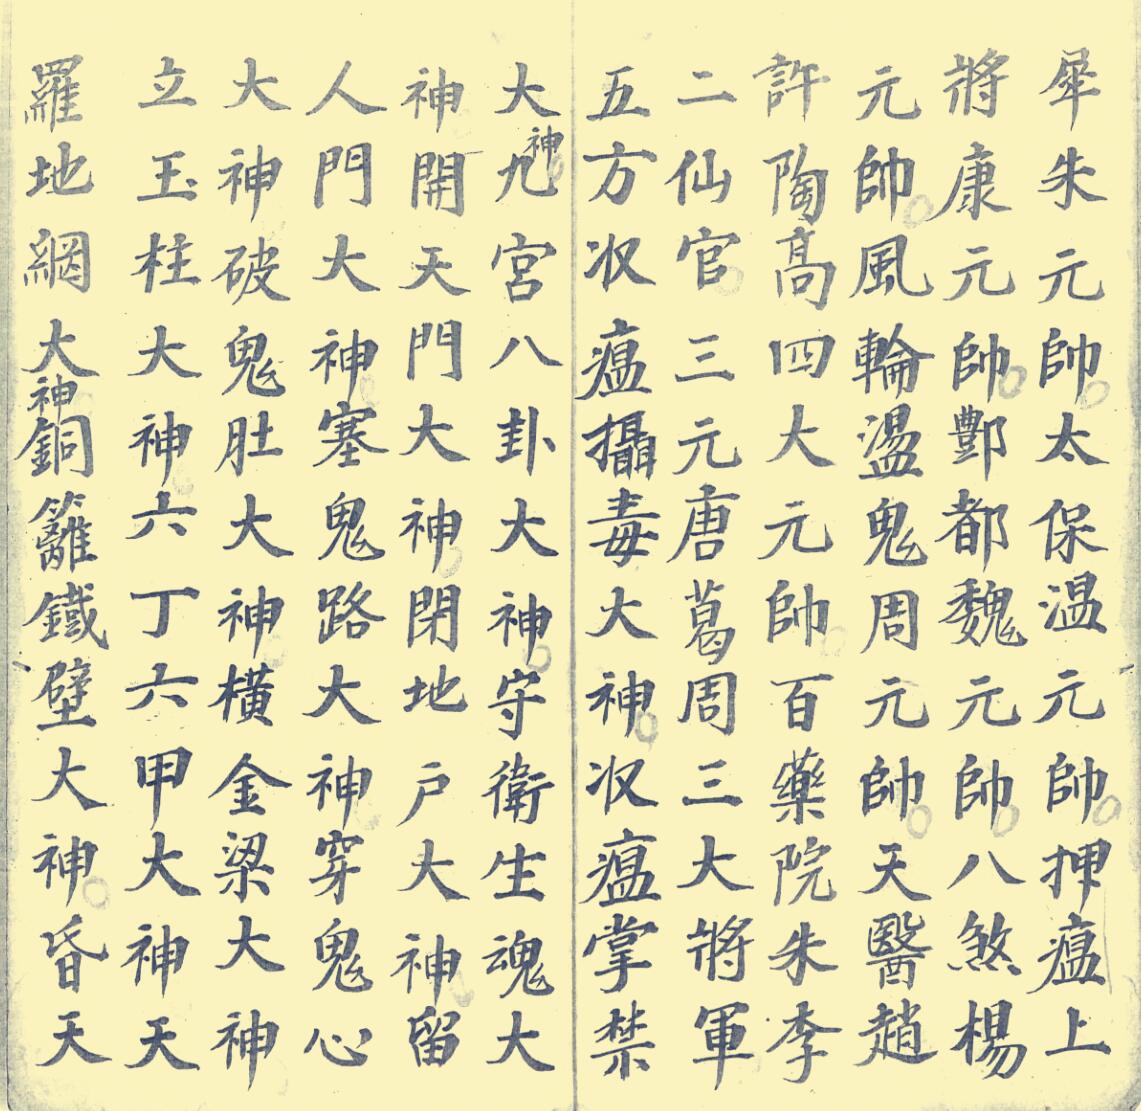 犀朱元帥太保溫元帥押瘟上
將康元帥酆都魏元帥八煞楊
元帥風輪盪鬼周元帥天醫趙
許陶高四大元帥百藥院朱李
二仙官三元唐葛周三大將軍
五方收瘟攝毒大神收瘟掌禁
大神九宮八卦大神守衛生魂大
神開天門大神閉地戶大神留
人門大神塞鬼路大神穿鬼心
大神破鬼肚大神橫金梁大神
立玉柱大神六丁六甲大神天
羅地網大神銅籬鐵壁大神昏天